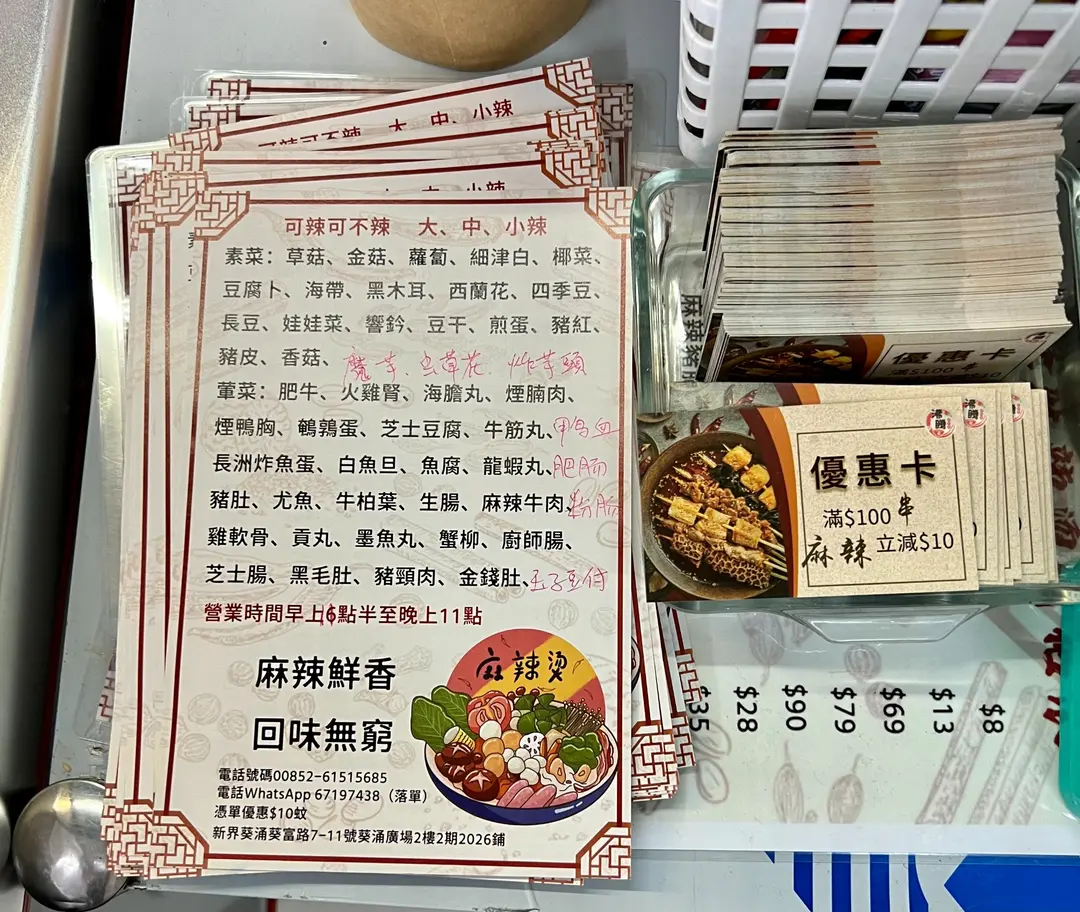 大 中、小辣
可辣可不辣 大、中、小辣
素菜：草菇、金菇、蘿蔔、細津白、椰菜、
豆腐卜、海帶、黑木耳、西蘭花、四季豆、
長豆、娃娃菜、響鈴、豆干、煎蛋、豬紅、
豬皮、香菇、魔芋、虫草花、炸芋頭
葷菜：肥牛、火雞腎、海膽丸、煙腩肉、
煙鴨胸、鵪鶉蛋、芝士豆腐、牛筋丸、鸭血
長洲炸魚蛋、白魚旦、魚腐、龍蝦丸、肥肠
豬肚、尤魚、牛柏葉、生腸、麻辣牛肉、粉肠
雞軟骨、貢丸、墨魚丸、蟹柳、廚師腸、
芝士腸、黑毛肚、豬頸肉、金錢肚、玉子豆付
營業時間早上6點半至晚上11點
麻辣鮮香
回味無窮
麻辣烫
電話號碼00852-61515685
電話WhatsApp 67197438（落單）
憑單優惠$10蚊
新界葵涌葵富路7-11號葵涌廣場2樓2期2026鋪
優惠卡
滿$100 串
優惠卡
滿$100 串
麻辣 立減$10
麻辣豬
$35
$28
$90
$79
$69
$13
$8